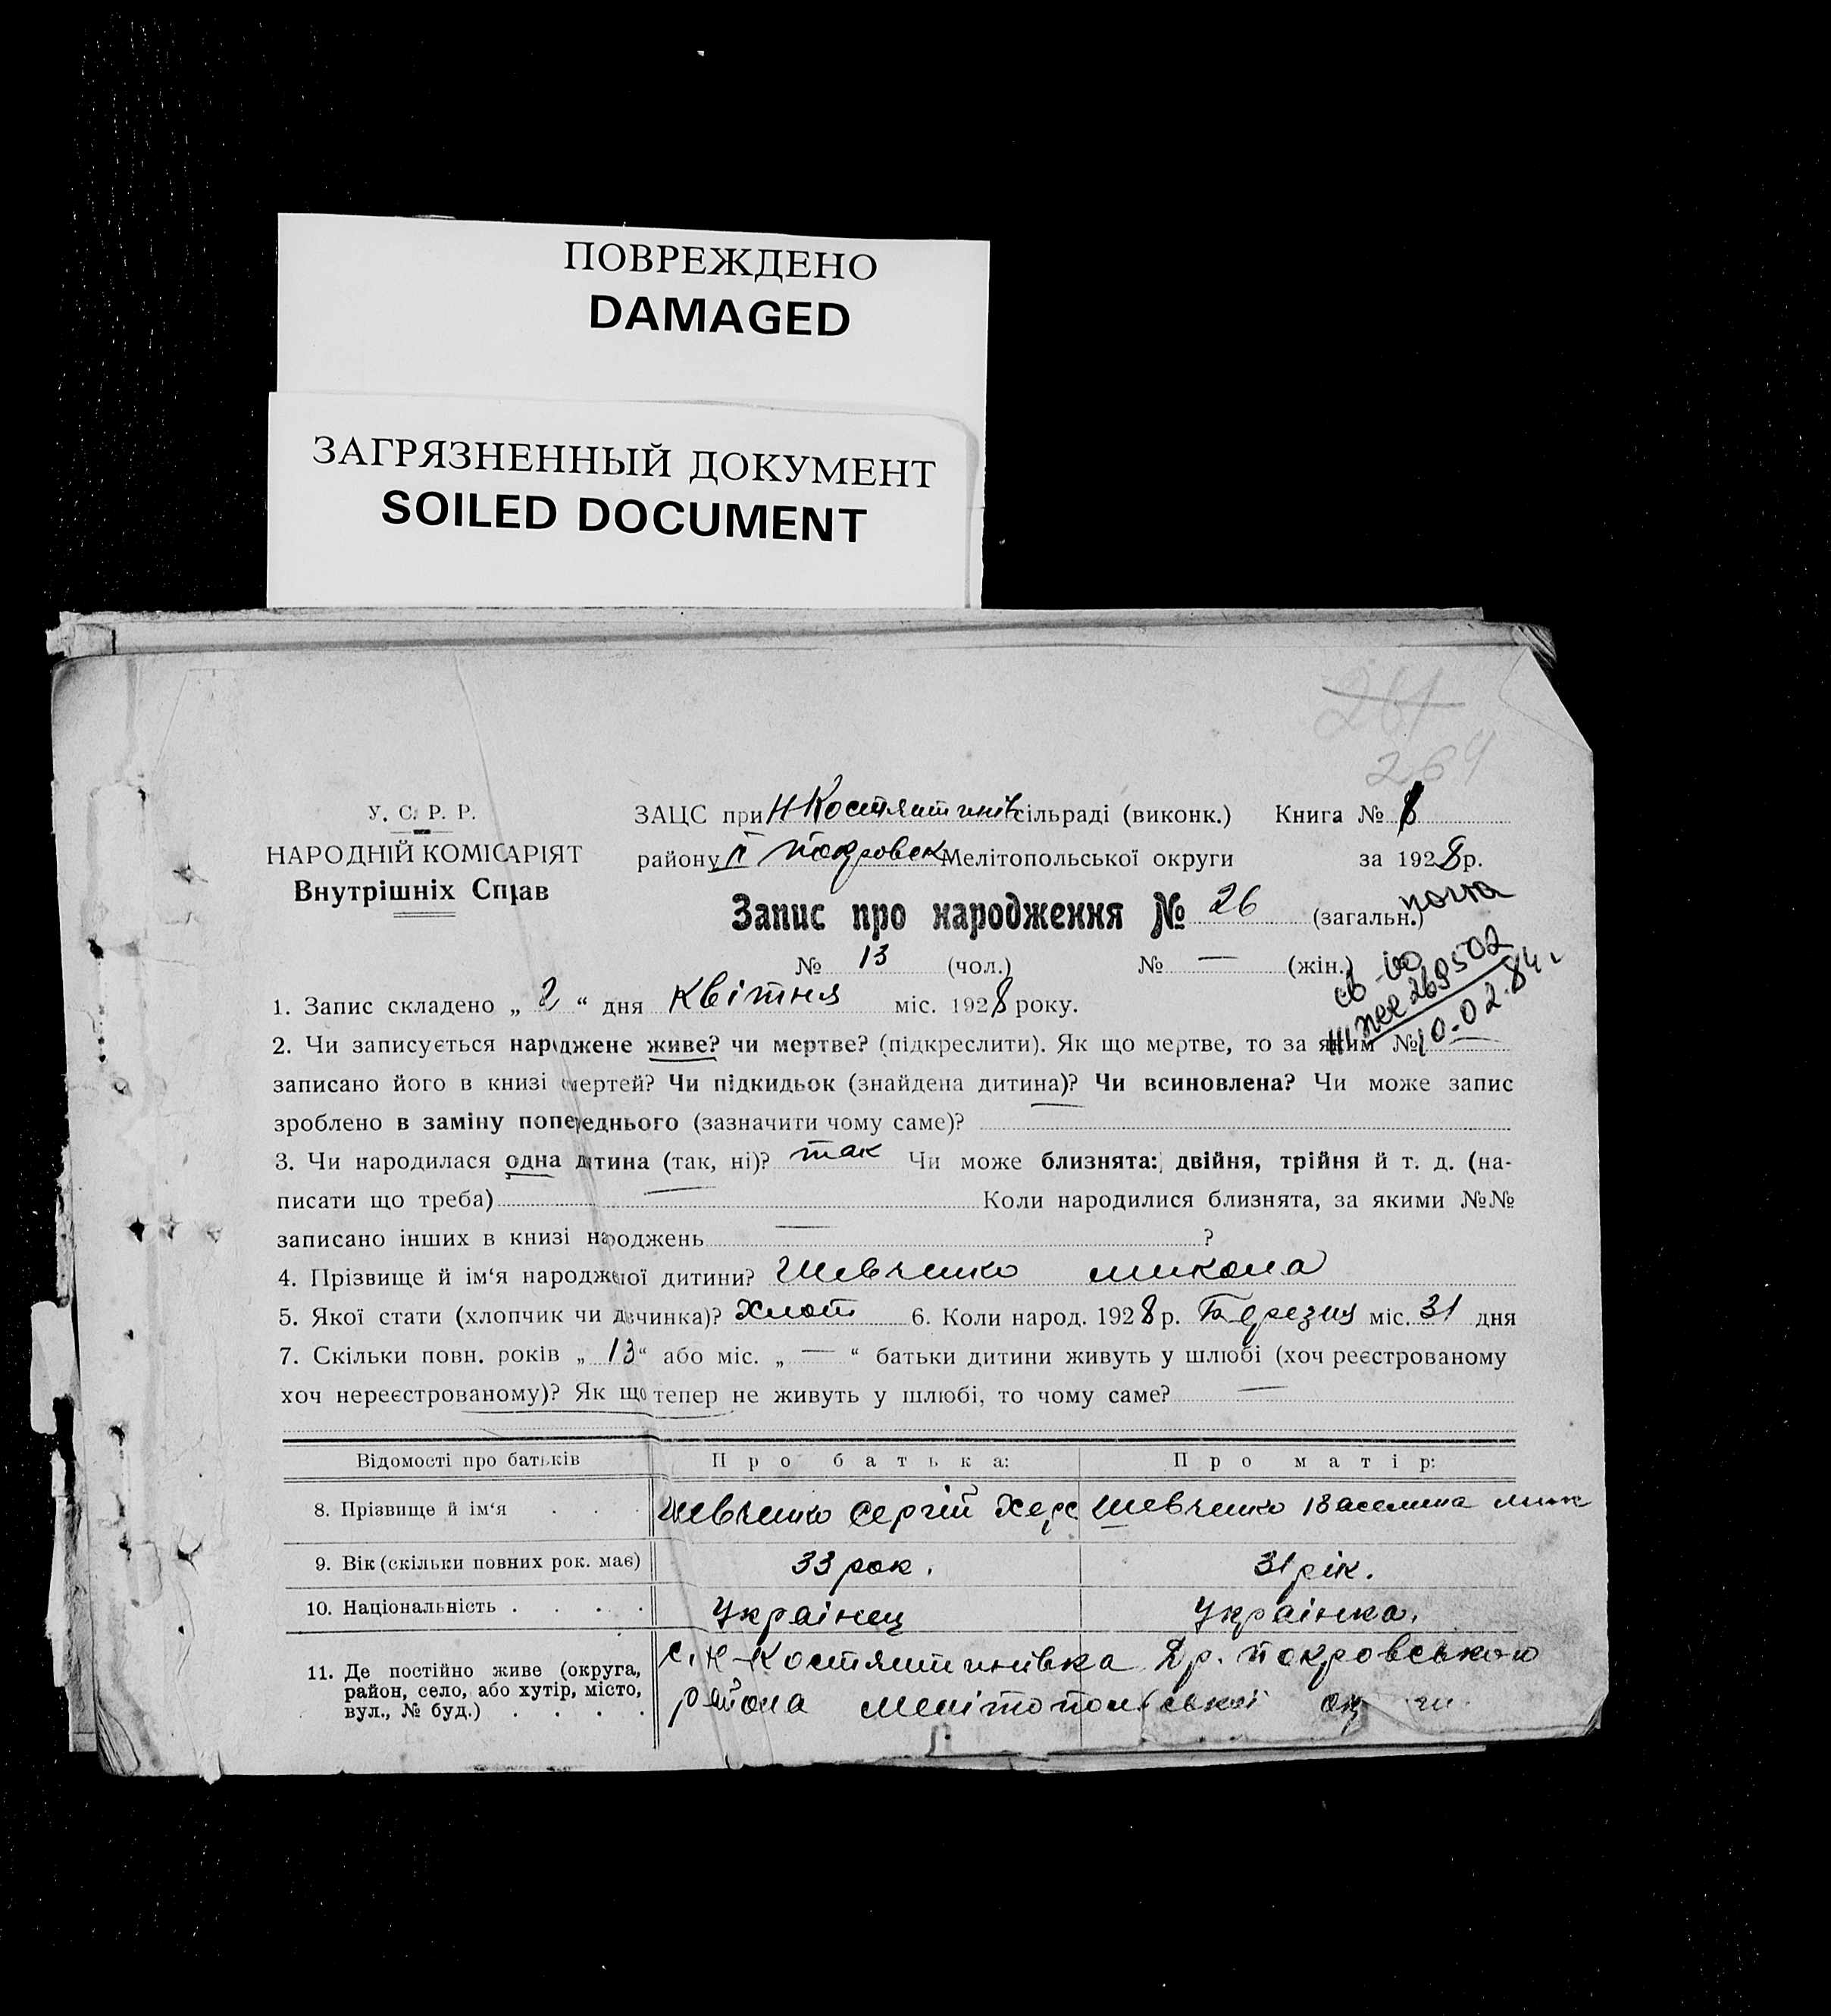 ПОВРЕЖДЕНО
DAMAGED
ЗАГРЯЗНЕННЫЙ ДОКУМЕНТ
SOILED DOCUMENT
261
264
У. С. Р. Р.
НАРОДНІЙ КОМІСАРІЯТ
Внутрішніх Справ
ЗАЦС при Н-Костянтинів сільраді (виконк.) Книга № 8
району Покровск Мелітопольської округи за 1928 р.
Запис про народження № 26 (загальн.)
№ 13 (чол.) № — (жін.)
св-во
269502
10-02.84 г
1. Запис складено „ 2 “ дня Квітня міс. 1928 року.
2. Чи записується народжене живе? чи мертве? (підкреслити). Як що мертве, то за яким №
записано його в книзі смертей? Чи підкидьок (знайдена дитина)? Чи всиновлена? Чи може запис
зроблено в заміну попереднього (зазначити чому саме)? —
3. Чи народилася одна дитина (так, ні)? так Чи може близнята: двійня, трійня й т. д. (на-
писати що треба) — Коли народилися близнята, за якими №№
записано інших в книзі народжень — ?
4. Прізвище й ім‘я народженої дитини? Шевченко Микола
5. Якої стати (хлопчик чи дівчинка)? Хлоп 6. Коли народ. 1928 р. Березня міс. 31 дня
7. Скільки повн. років „ 13 “ або міс. „ — “ батьки дитини живуть у шлюбі (хоч реєстрованому
хоч нереєстрованому)? Як що тепер не живуть у шлюбі, то чому саме? —
Відомості про батьків Про батька: Про матір:
8. Прізвище й ім‘я . . . Шевченко Сергій Шевченко Василина
9. Вік (скільки повних рок. має) 33 рок. 31 рік.
10. Національність . . . . Українец Українка.
11. Де постійно живе (округа,
район, село, або хутір, місто,
вул., № буд.) . . . .
с. Н-Костянтинівка Покровського
района Мелітопольської